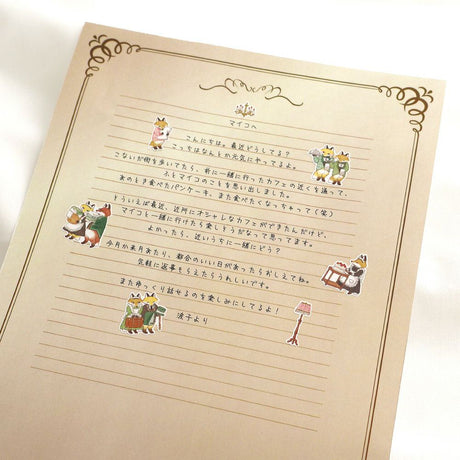 マイコへ
こんにちは。最近どうしてる？
こっちはなんとか元気にやってるよ。
こないだ街を歩いてたら、前に一緒に行ったカフェの近くを通って、
ふとマイコのことを思い出しました。
あのとき食べたパンケーキ、また食べたくなっちゃって(笑)
そういえば最近、近所にオシャレなカフェができたんだけど、
マイコと一緒に行けたら楽しそうだなって思ってます。
よかったら、近いうちに一緒にどう？
今月か来月あたり、都合のいい日があったらおしえてね。
気軽に返事もらえたらうれしいです。
またゆっくり話せるのを楽しみにしてるよ！
波子より